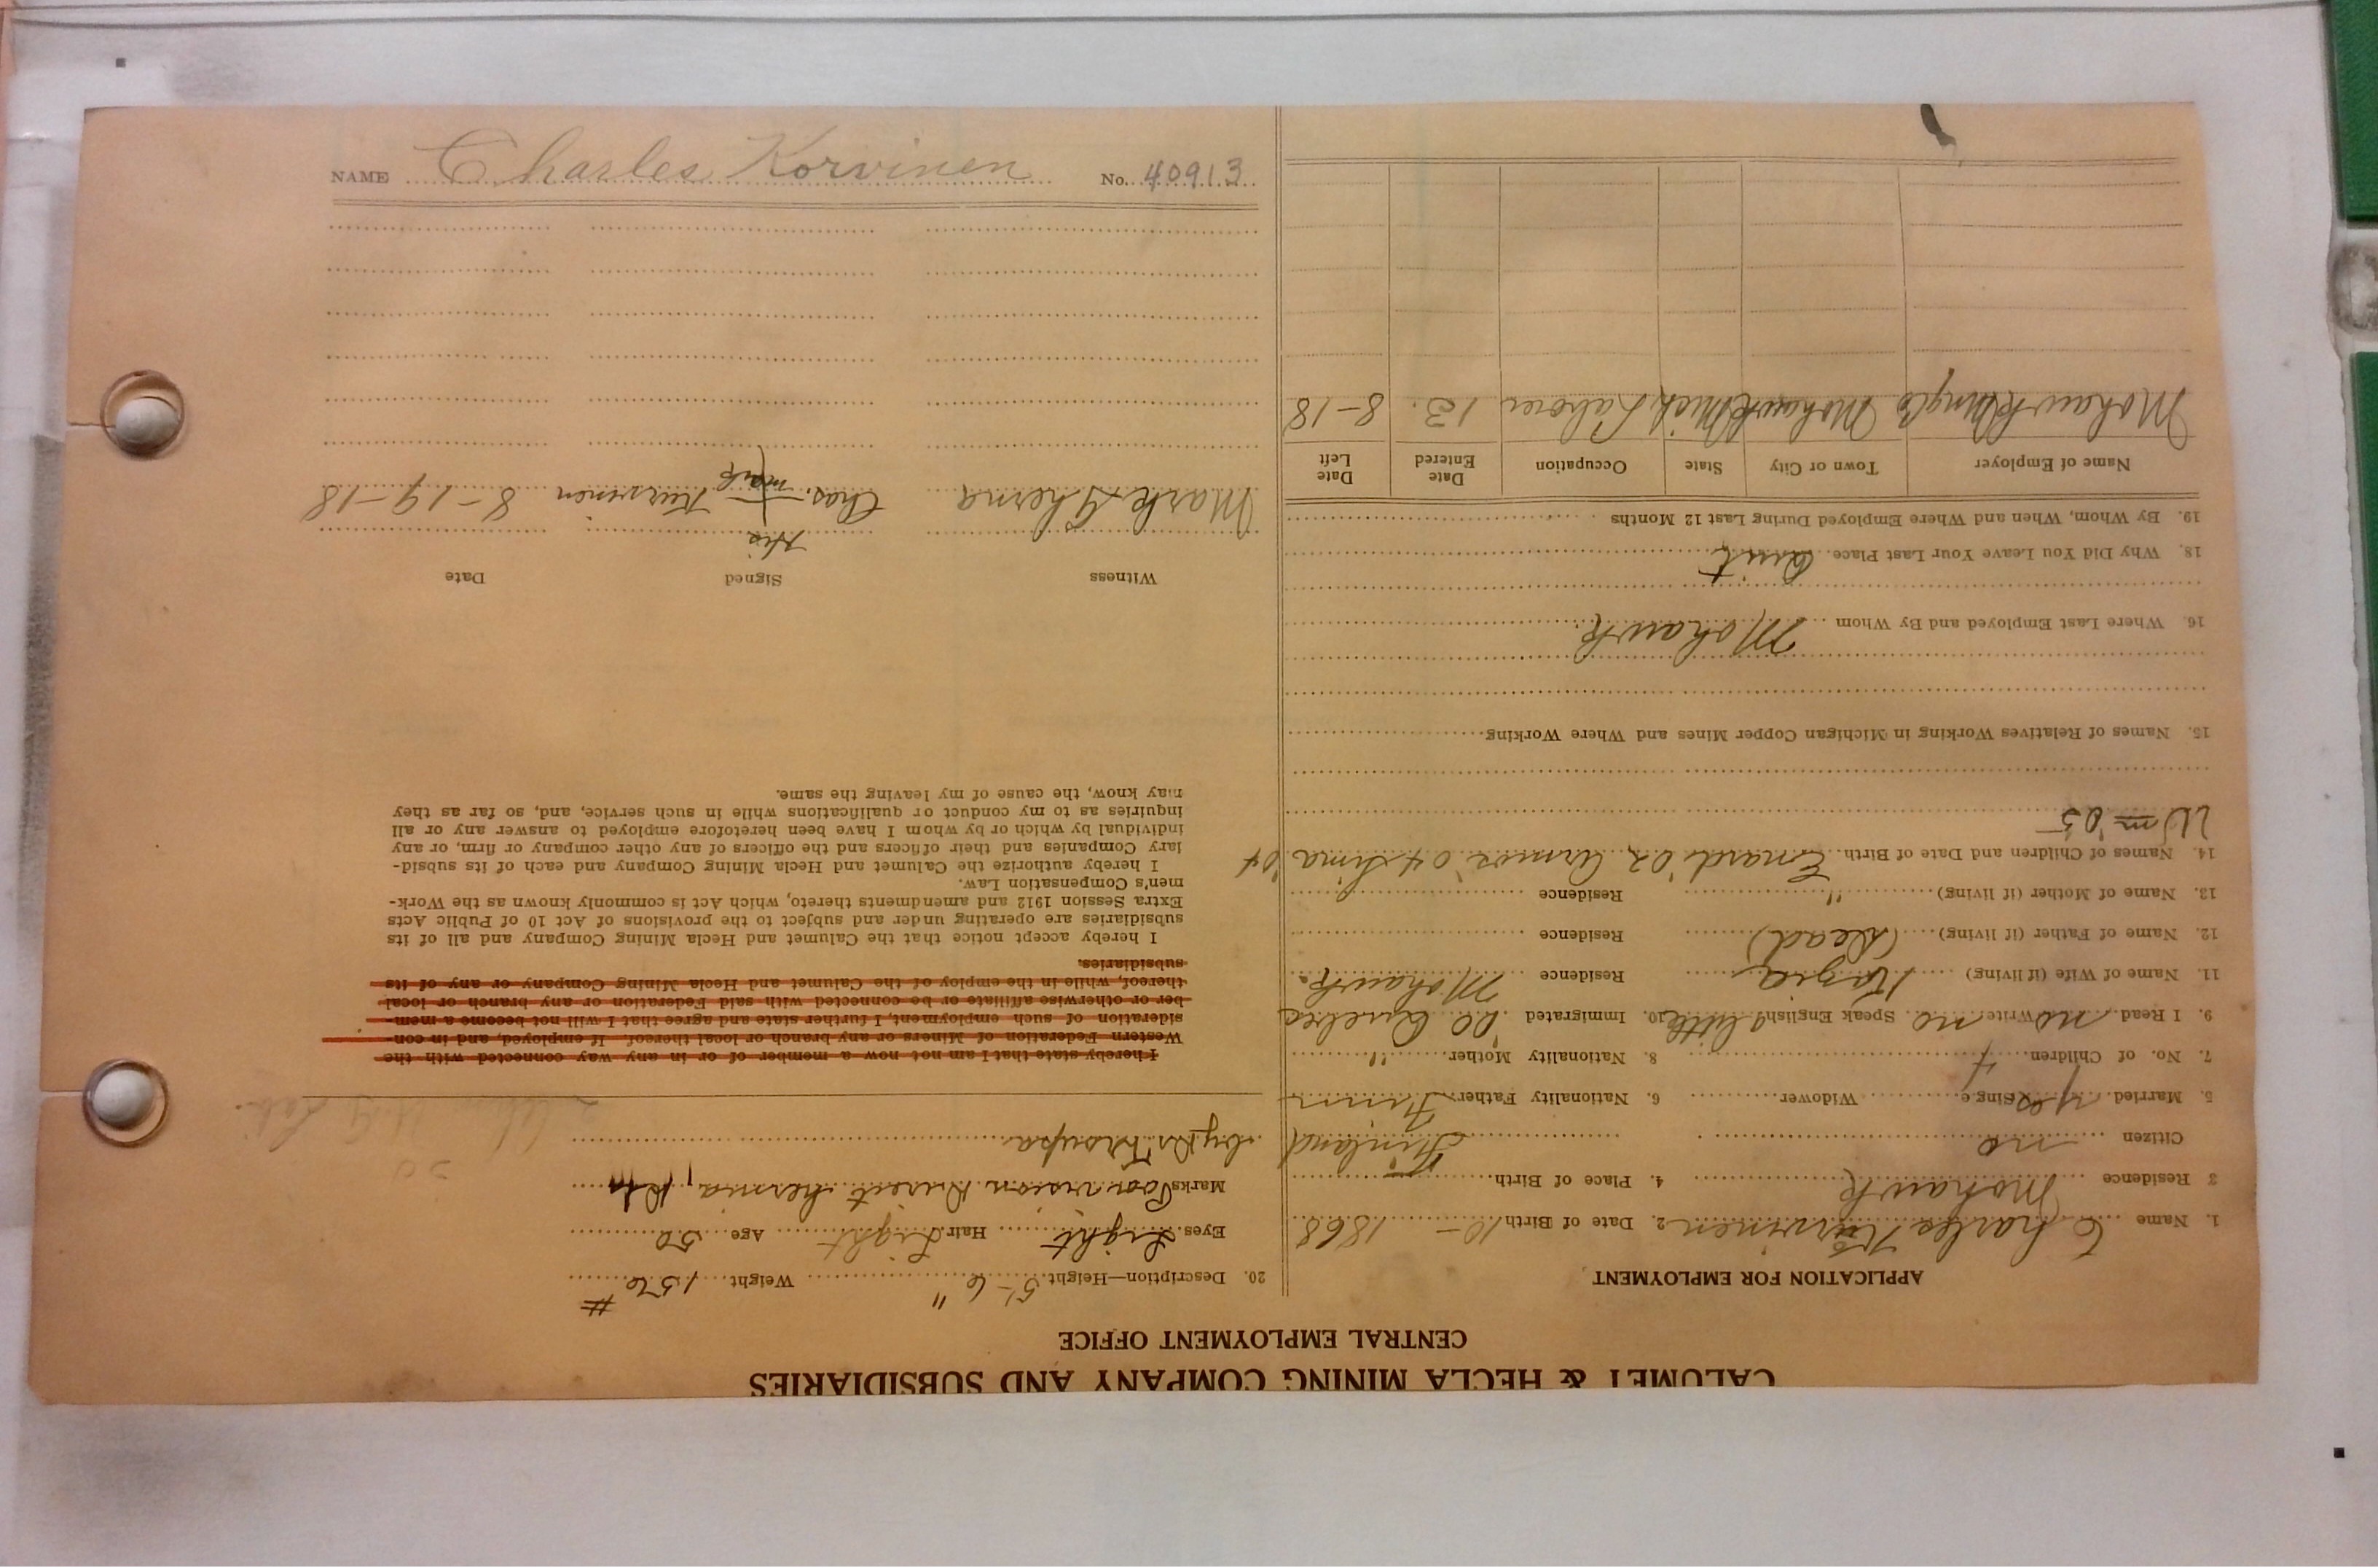 CALUMET & HECLA MINING COMPANY AND SUBSIDIARIES
CENTRAL EMPLOYMENT OFFICE
APPLICATION FOR EMPLOYMENT
1. Name Charles Kurvinen 2. Date of Birth 10 - 1868
3 Residence Mohawk 4. Place of Birth
Citizen no Finland
5. Married yes Single Widower 6. Nationality Father Finn
7. No. of Children 4 8. Nationality Mother "
9. I Read no Write no Speak English little 10. Immigrated Quebec
11. Name of Wife (if living) Residence Mohawk.
12. Name of Father (if living) (Dead) Residence
13. Name of Mother (if living) " Residence
14. Names of Children and Date of Birth. '02 '04 '04
Wm '05
15. Names of Relatives Working in Michigan Copper Mines and Where Working
16. Where Last Employed and By Whom Mohawk.
18. Why Did You Leave Your Last Place Quit
19. By Whom, When and Where Employed During Last 12 Months
Name of Employer Town or City State Occupation Date Entered Date Left
Mohawk Mng Co Mohawk Mich Laborer 13. 8-18
20. Description—Height 5'-6" Weight 156 #
Eyes Light Hair Light Age 50
Marks Poor vision hernia
by Dr
I hereby state that I am not now a member of or in any way connected with the
Western Federation of Miners or any branch or local thereof. If employed, and in con-
sideration of such employment, I further state and agree that I will not become a mem-
ber or otherwise affiliate or be connected with said Federation or any branch or local
thereof, while in the employ of the Calumet and Hecla Mining Company or any of its
subsidiaries.
I hereby accept notice that the Calumet and Hecla Mining Company and all of its
subsidiaries are operating under and subject to the provisions of Act 10 of Public Acts
Extra Session 1912 and amendments thereto, which Act is commonly known as the Work-
men's Compensation Law.
I hereby authorize the Calumet and Hecla Mining Company and each of its subsid-
iary Companies and their officers and the officers of any other company or firm, or any
individual by which or by whom I have been heretofore employed to answer any or all
inquiries as to my conduct or qualifications while in such service, and, so far as they
may know, the cause of my leaving the same.
Witness Signed Date
His
Mark Gherna Chas. Kurvinen 8-19-18
mark
NAME Charles Korvinen No. 40913